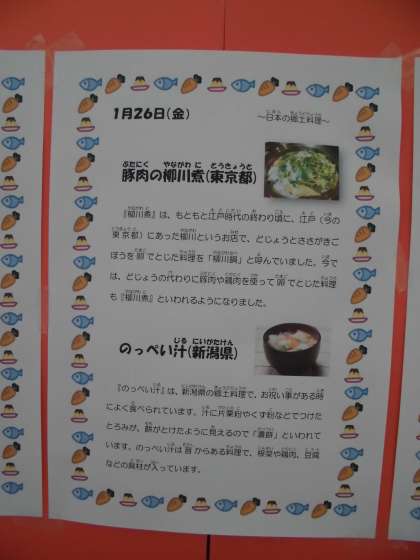 1月26日(金)
～日本の郷土料理～
豚肉の柳川煮(東京都)
『柳川煮』は、もともと江戸時代の終わり頃に、江戸（今の
東京都）にあった柳川というお店で、どじょうとささがきご
ぼうを卵でとじた料理を「柳川鍋」と呼んでいました。今で
は、どじょうの代わりに豚肉や鶏肉を使って卵でとじた料理
も『柳川煮』といわれるようになりました。
のっぺい汁(新潟県)
『のっぺい汁』は、新潟県の郷土料理で、お祝い事がある時
によく食べられています。汁に片栗粉やくず粉などでつけた
とろみが、餅がとけたように見えるので「濃餅」といわれて
います。のっぺい汁は昔からある料理で、根菜や鶏肉、豆腐
などの具材が入っています。